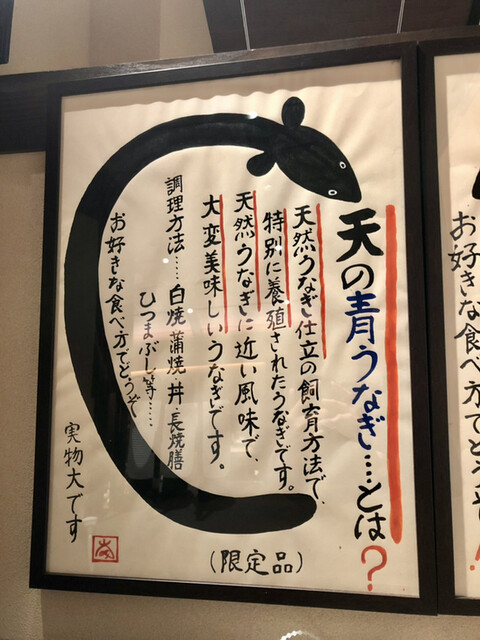 天の青うなぎ‥‥とは?
天然うなぎ仕立の飼育方法で、
特別に養殖されたうなぎです。
天然うなぎに近い風味で、
大変美味しいうなぎです。
調理方法‥‥‥白焼・蒲焼・丼・長焼膳
ひつまぶし等‥‥‥
お好きな食べ方でどうぞ
実物大です
(限定品)
お好きな食べ方でどうぞ!